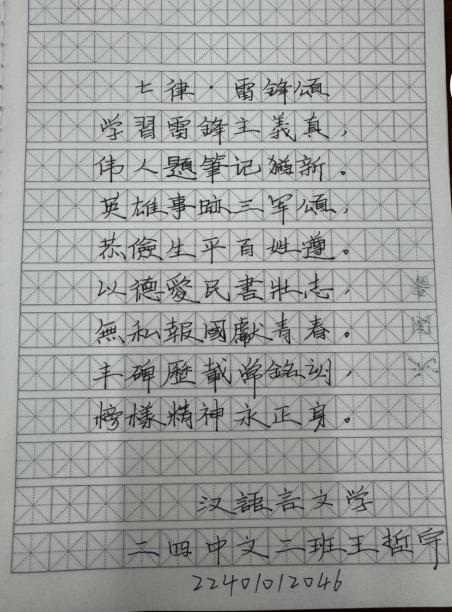 七律·雷鋒頌
学習雷鋒主義真，
伟人題筆记猶新。
英雄事跡三军頌，
恭儉生平百姓遵。
以德愛民書壯志，
無私報國獻青春。
丰碑歷載常銘训，
榜樣精神永正身。
汉語言文学
二四中文二班王哲宇
22401012046